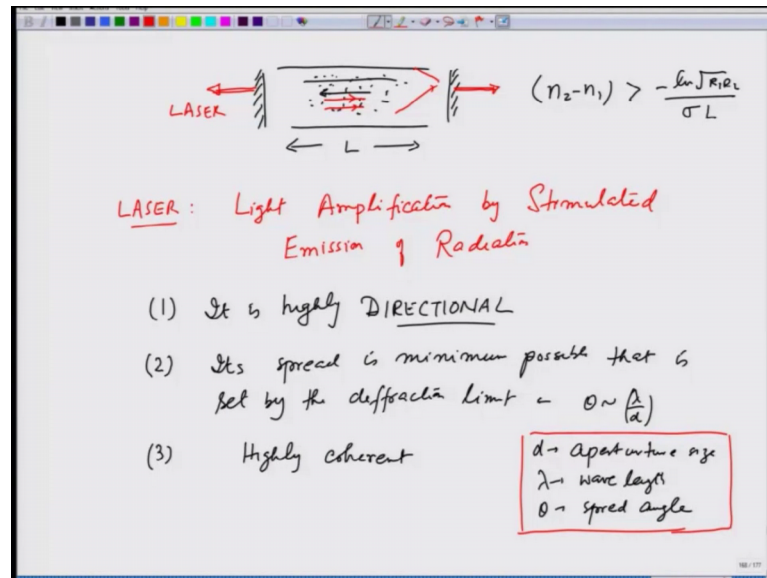 LASER
L
(n₂-n₁) > -ln√R₁R₂ / σL
LASER : Light Amplification by Stimulated
Emission of Radiation
(1) It is highly DIRECTIONAL
(2) Its spread is minimum possible that is
set by the deffraction limit - θ~(λ/d)
(3) Highly coherent
d→ aperturture size
λ→ wave length
θ→ spred angle
168 / 177